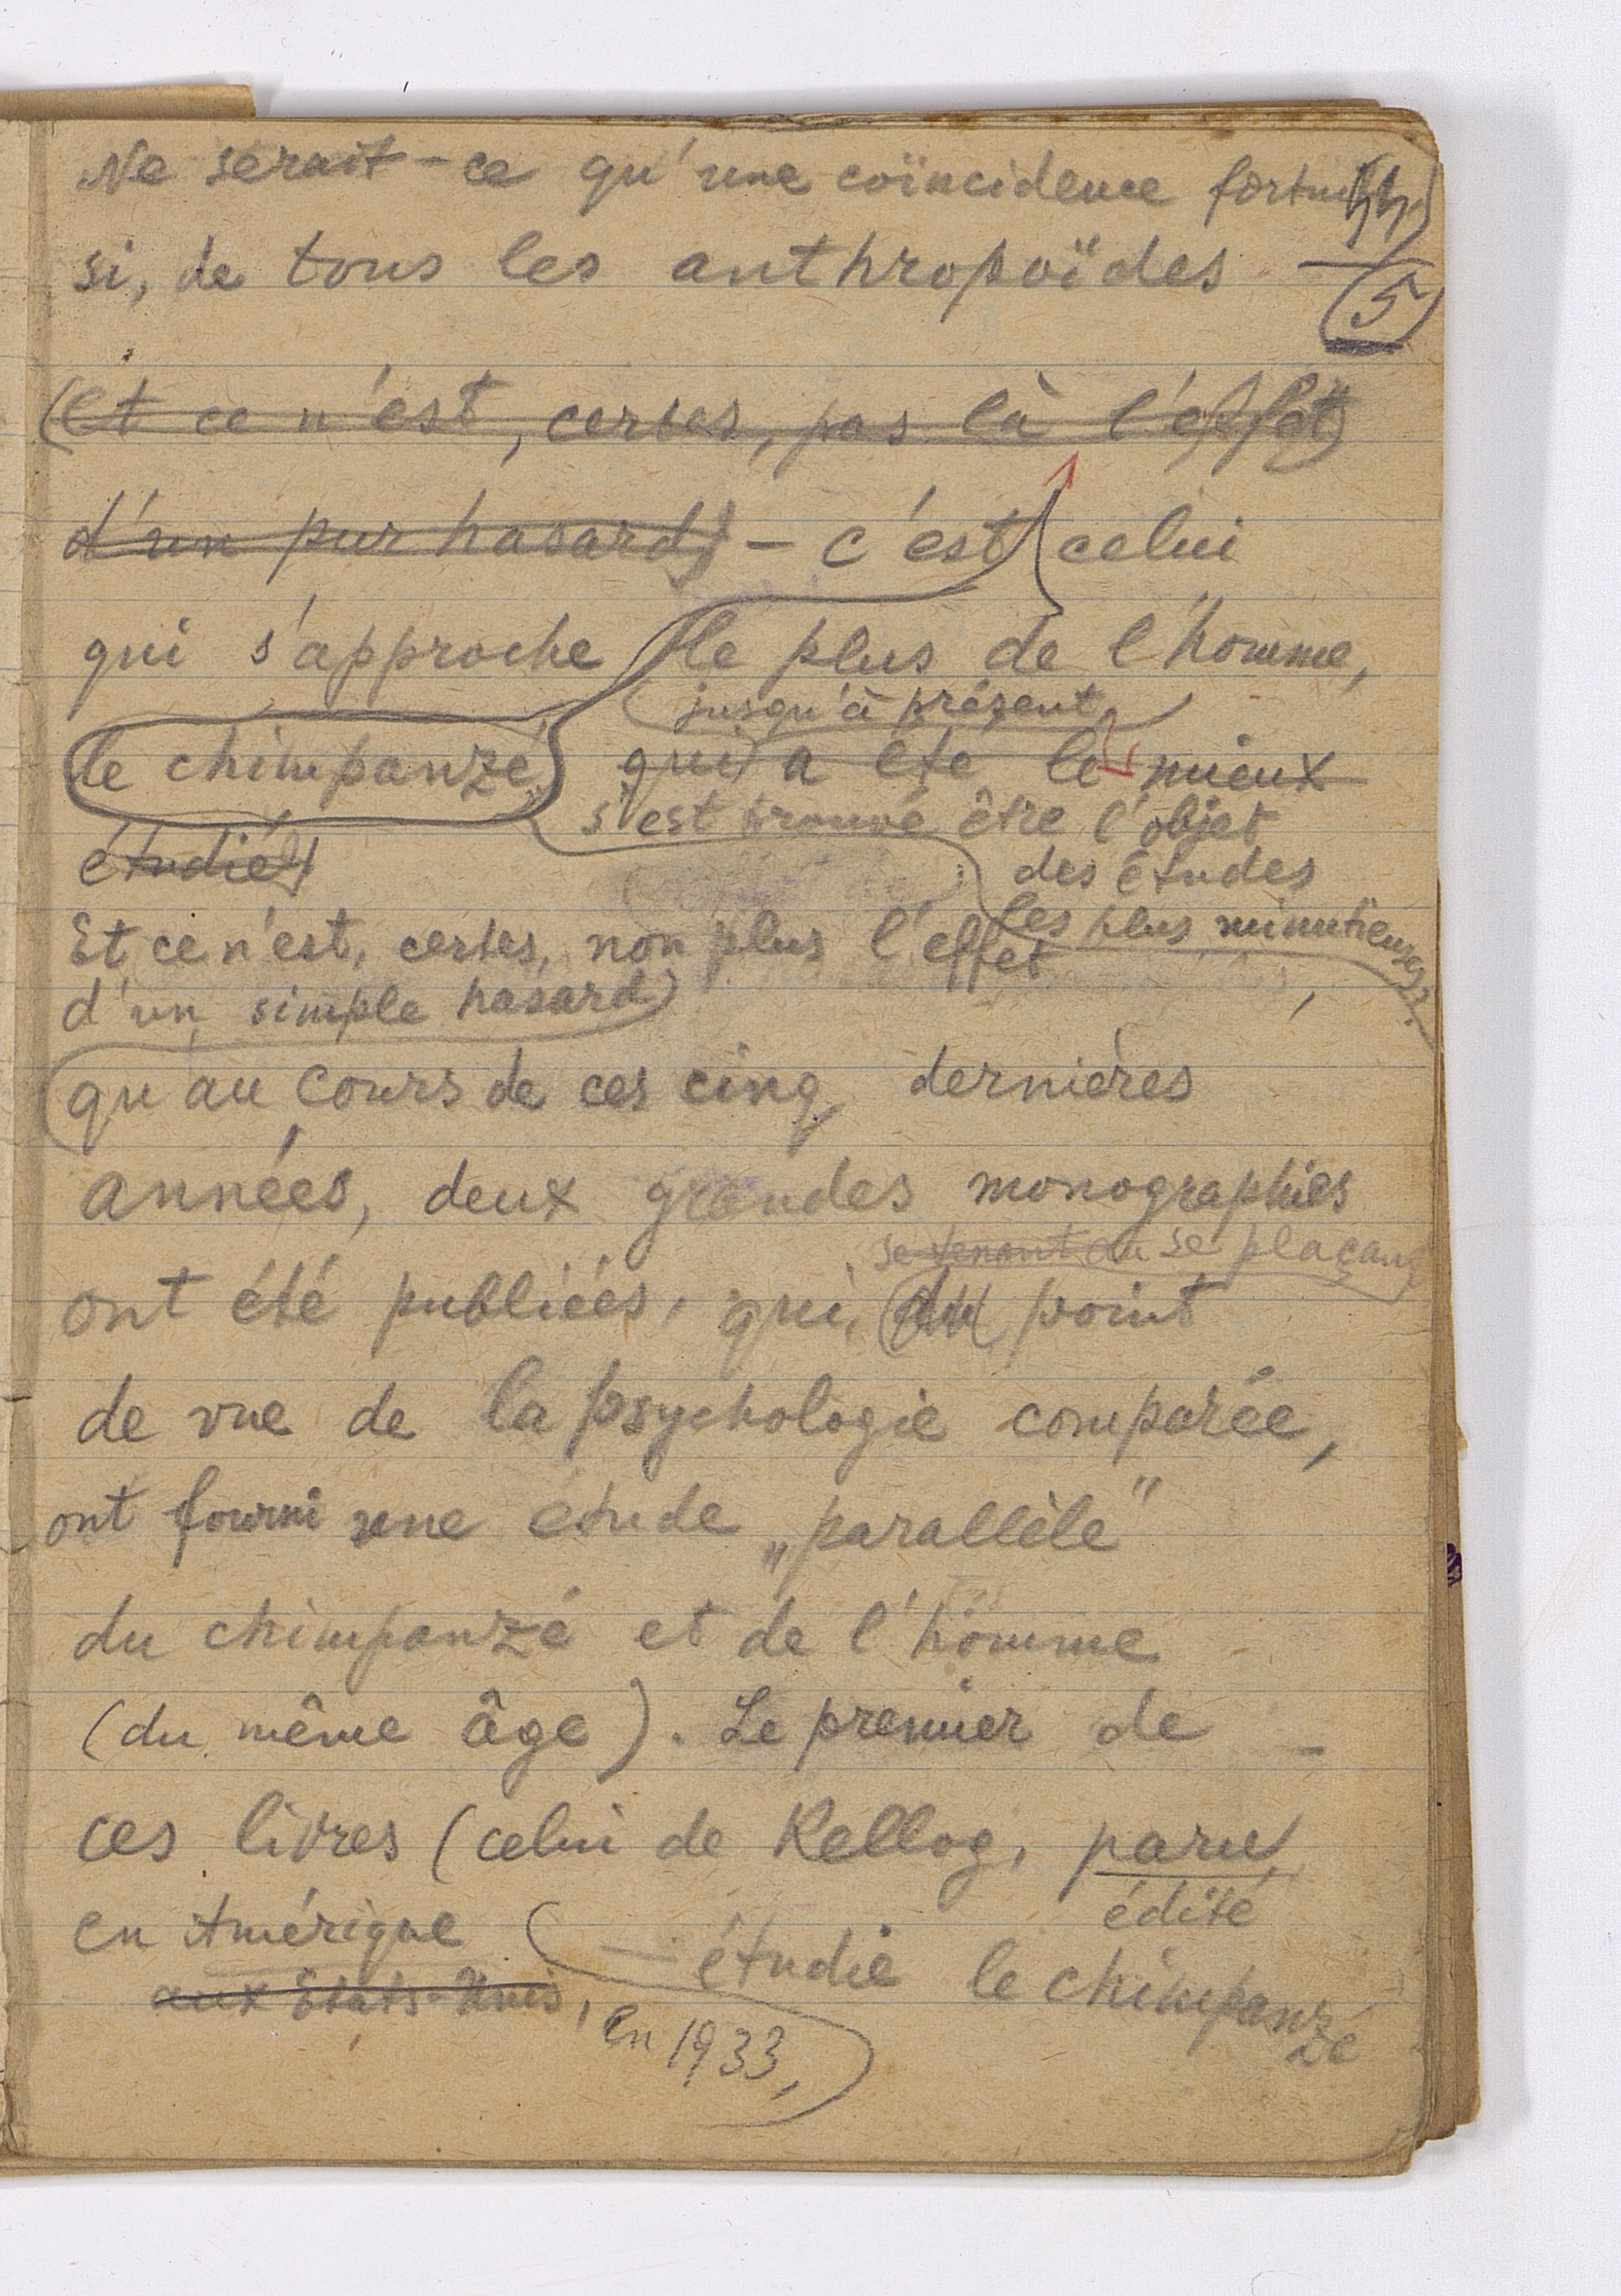 Ne serait-ce qu'une coïncidence fortuite
si, de tous les anthropoïdes
5
(Et ce n'est, certes, pas là l'effet
d'un pur hasard) – c'est celui
qui s'approche le plus de l'homme,
jusqu'à présent
le chimpanzé qui a été le mieux
s'est trouvé être l'objet
étudié)
des études
les plus minutieuses?
Et ce n'est, certes, non plus l'effet
d'un simple hasard
qu'au cours de ces cinq dernières
années, deux grandes monographies
se plaçant
ont été publiées, qui, du point
de vue de la psychologie comparée,
ont fourni une étude „parallèle"
du chimpanzé et de l'homme
(du même âge). Le premier de
ces livres (celui de Kellog, paru
édité
en Amérique
– étudie le chimpanzé
aux Etats-Unis, en 1933,